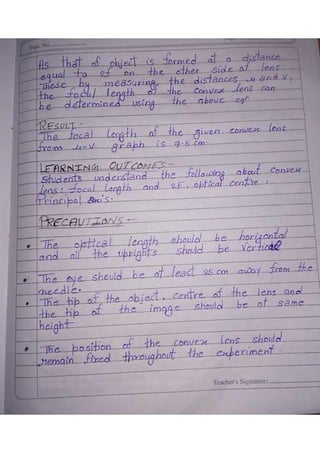 Expt. No.
As that of object is formed at a distance
equal to 2f on the other side of lens
these by measuring, the distances u and v,
the focal length of the convex lens can
be determined using the above eqn
RESULT-
The focal length of the given convex lens
from u-v graph is 7.5 cm.
LEARNING OUTCOMES-
Students understand the following about convex
lens: focal length and 2F, optical centre,
Principal axis.
PRECAUTIONS-
• The optical length should be horizontal
and all the uprights should be vertical
• The eye should be at least 25 cm away from the
needle.
• The tip of the object, centre of the lens and
the tip of the image should be at same
height
• The position of the convex lens should
remain fixed throughout the experiment.
Teacher's Signature: